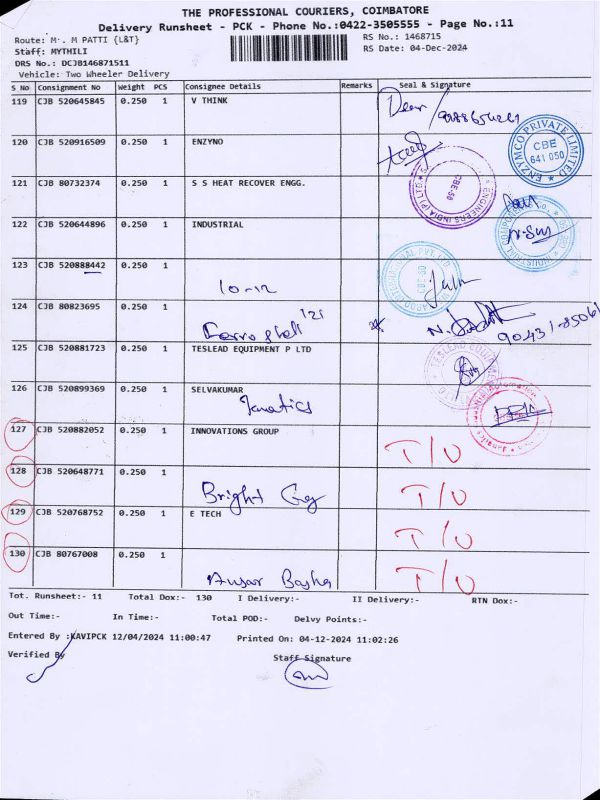 THE PROFESSIONAL COURIERS, COIMBATORE
Delivery Runsheet - PCK - Phone No.:0422-3505555 - Page No.:11
Route: M . M PATTI {L&T}
RS No.: 1468715
Staff: MYTHILI
RS Date: 04-Dec-2024
DRS No.: DCJB146871511
Vehicle: Two Wheeler Delivery
S No Consignment No Weight PCS Consignee Details Remarks Seal & Signature
119 CJB 520645845 0.250 1 V THINK
120 CJB 520916509 0.250 1 ENZYNO
ENZYMCO PRIVATE LIMITED
CBE
641 050
121 CJB 80732374 0.250 1 S S HEAT RECOVER ENGG.
ENGINEERS INDIA (P) LTD
CBE-50
122 CJB 520644896 0.250 1 INDUSTRIAL
123 CJB 520888442 0.250 1
10-12
124 CJB 80823695 0.250 1
125 CJB 520881723 0.250 1 TESLEAD EQUIPMENT P LTD
126 CJB 520899369 0.250 1 SELVAKUMAR
Janatics
127 CJB 520882052 0.250 1 INNOVATIONS GROUP T/O
128 CJB 520648771 0.250 1 T/O
Bright
129 CJB 520768752 0.250 1 E TECH T/O
130 CJB 80767008 0.250 1 T/O
Ansar Basha
Tot. Runsheet:- 11 Total Dox:- 130 I Delivery:- II Delivery:- RTN Dox:-
Out Time:- In Time:- Total POD:- Delvy Points:-
Entered By :KAVIPCK 12/04/2024 11:00:47 Printed On: 04-12-2024 11:02:26
Verified By
Staff Signature